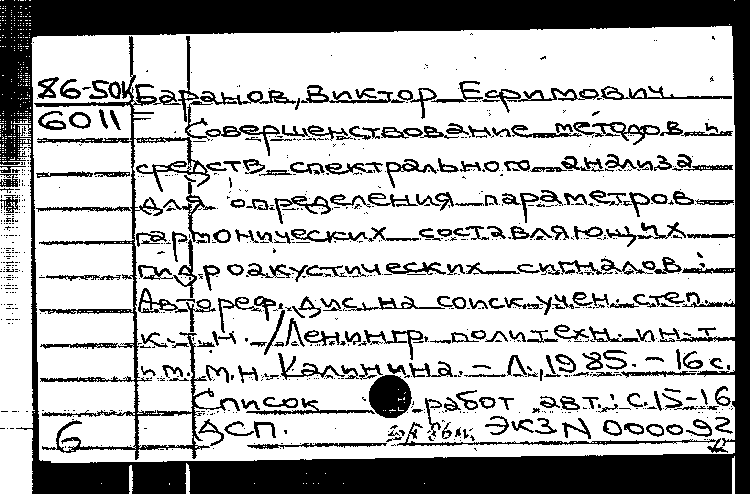 86-50К Баранов, Виктор Ефимович.
6011 Совершенствование методов и
средств спектрального анализа
для определения параметров
гармонических составляющих
гидроакустических сигналов :
Автореф. дис. на соиск. учен. степ.
к. т. н. / Ленингр. политехн. ин-т
им. М. И. Калинина. - Л., 1985. - 16 с.
Список работ авт.: с. 15-16
6 ДСП. ЭКЗ N 000092